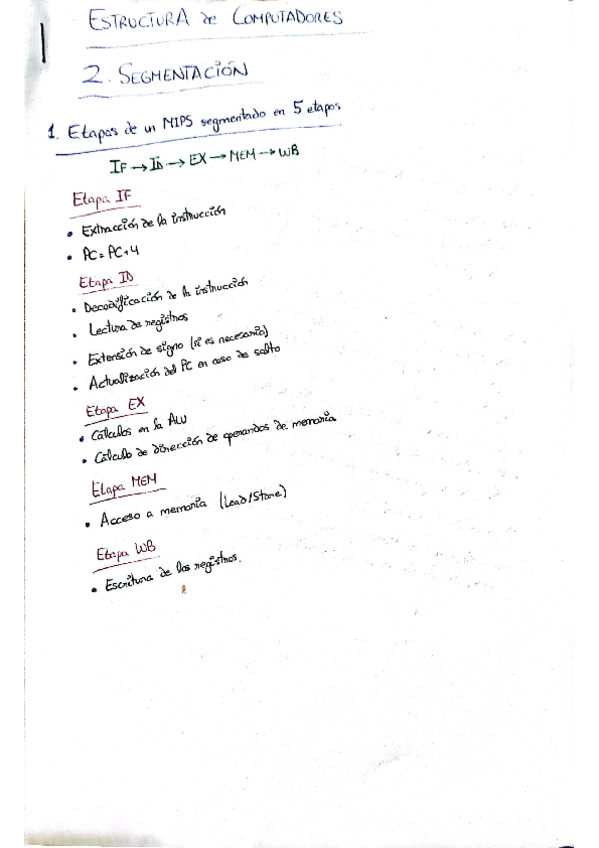 ESTRUCTURA de COMPUTADORES
2. SEGMENTACIÓN
1. Etapas de un MIPS segmentado en 5 etapas
IF → ID → EX → MEM → WB
Etapa IF
• Extracción de la instrucción
• PC = PC+4
Etapa ID
• Decodificación de la instrucción
• Lectura de registros
• Extensión de signo (si es necesario)
• Actualización del PC en caso de salto
Etapa EX
• Cálculos en la ALU
• Cálculo de dirección de operandos de memoria
Etapa MEM
• Acceso a memoria (Load/Store)
Etapa WB
• Escritura de los registros.